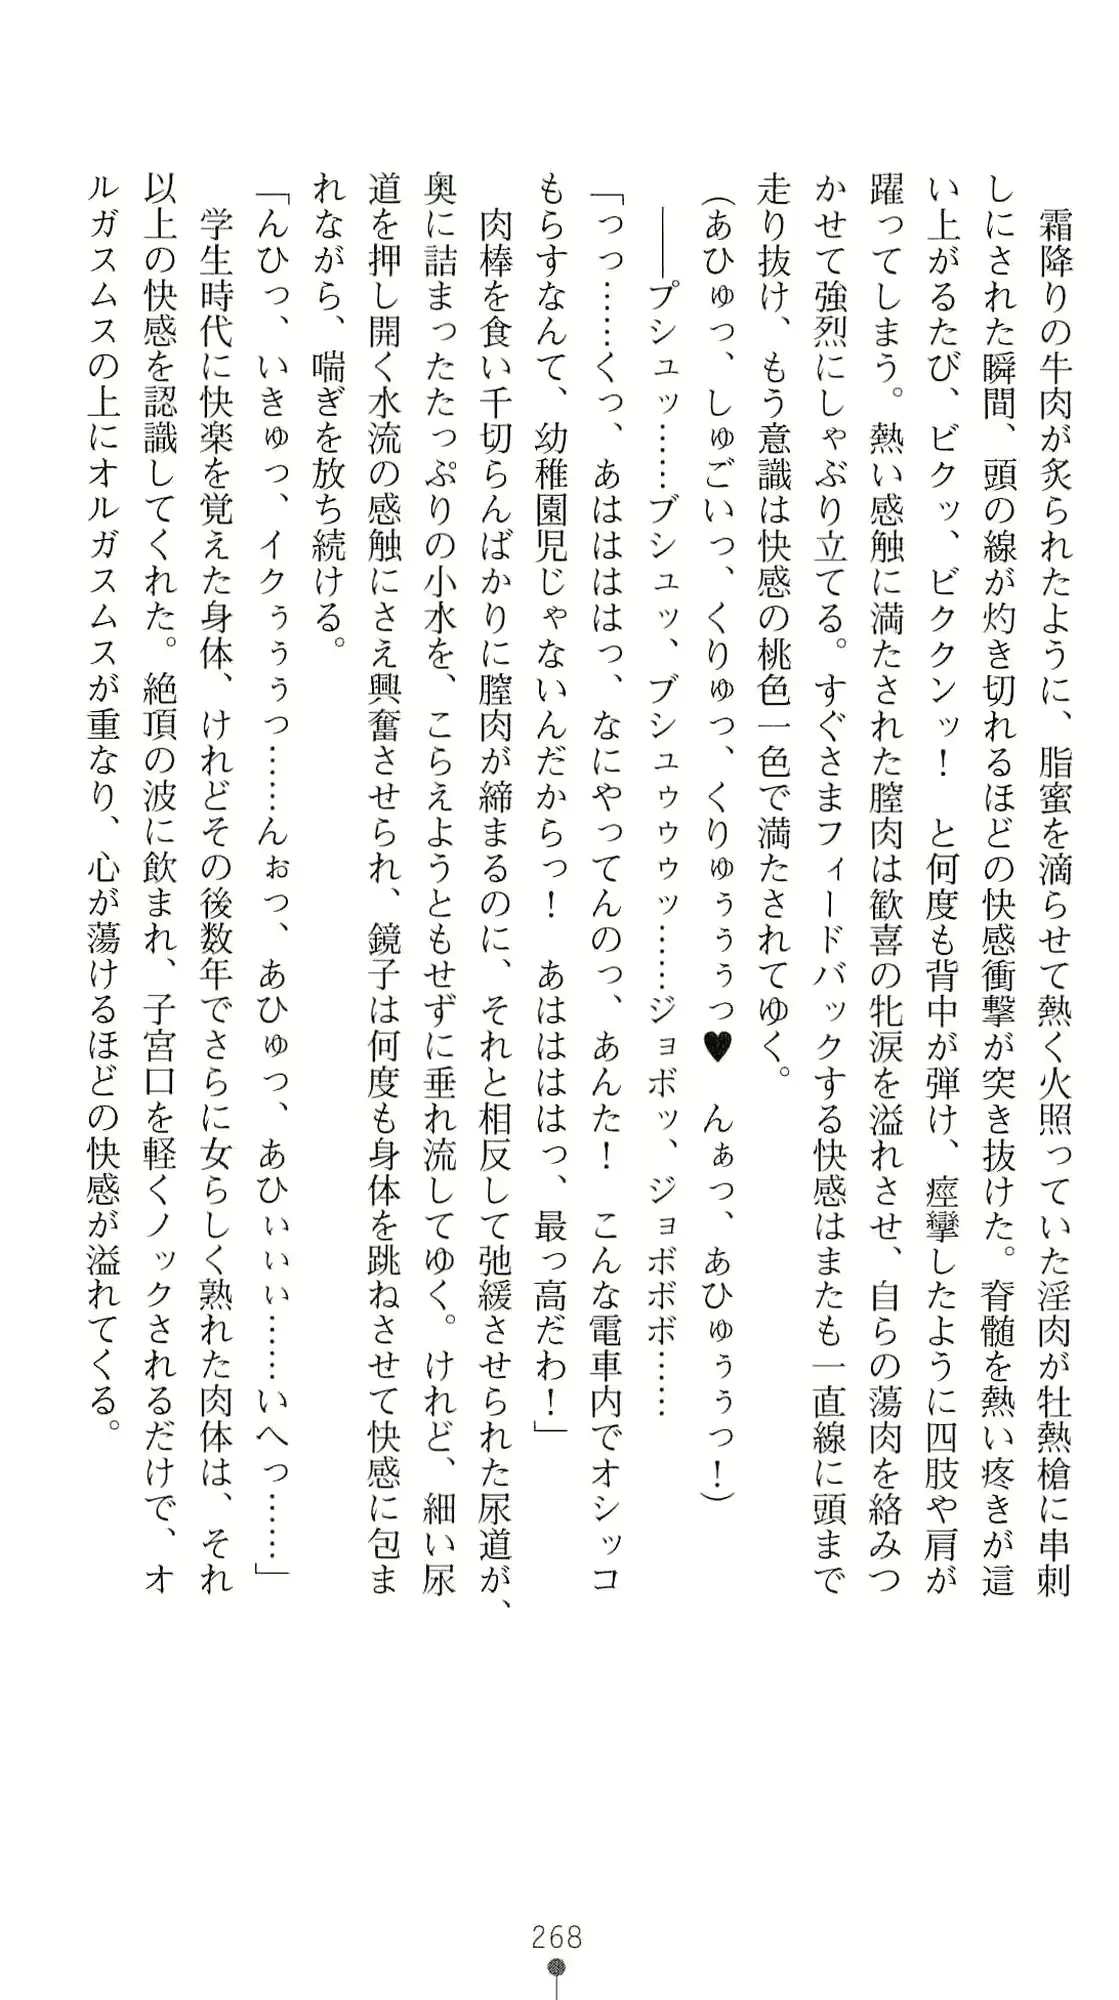 霜降りの牛肉が炙られたように、脂蜜を滴らせて熱く火照っていた淫肉が牡熱槍に串刺
しにされた瞬間、頭の線が灼き切れるほどの快感衝撃が突き抜けた。脊髄を熱い疼きが這
い上がるたび、ビクッ、ビククンッ！　と何度も背中が弾け、痙攣したように四肢や肩が
躍ってしまう。熱い感触に満たされた膣肉は歓喜の牝涙を溢れさせ、自らの蕩肉を絡みつ
かせて強烈にしゃぶり立てる。すぐさまフィードバックする快感はまたも一直線に頭まで
走り抜け、もう意識は快感の桃色一色で満たされてゆく。
（あひゅっ、しゅごいっ、くりゅっ、くりゅぅぅぅっ♥　んぁっ、あひゅぅぅっ！）
――プシュッ……ブシュッ、ブシュゥゥゥッ……ジョボッ、ジョボボボ……
「っっ……くっ、あはははっ、なにやってんのっ、あんた！　こんな電車内でオシッコ
もらすなんて、幼稚園児じゃないんだからっ！　あはははっ、最っ高だわ！」
肉棒を食い千切らんばかりに膣肉が締まるのに、それと相反して弛緩させられた尿道が、
奥に詰まったたっぷりの小水を、こらえようともせずに垂れ流してゆく。けれど、細い尿
道を押し開く水流の感触にさえ興奮させられ、鏡子は何度も身体を跳ねさせて快感に包ま
れながら、喘ぎを放ち続ける。
「んひっ、いきゅっ、イクぅぅぅっ……んぉっ、あひゅっ、あひぃぃぃ……いへっ……」
学生時代に快楽を覚えた身体、けれどその後数年でさらに女らしく熟れた肉体は、それ
以上の快感を認識してくれた。絶頂の波に飲まれ、子宮口を軽くノックされるだけで、オ
ルガスムスの上にオルガスムスが重なり、心が蕩けるほどの快感が溢れてくる。
268